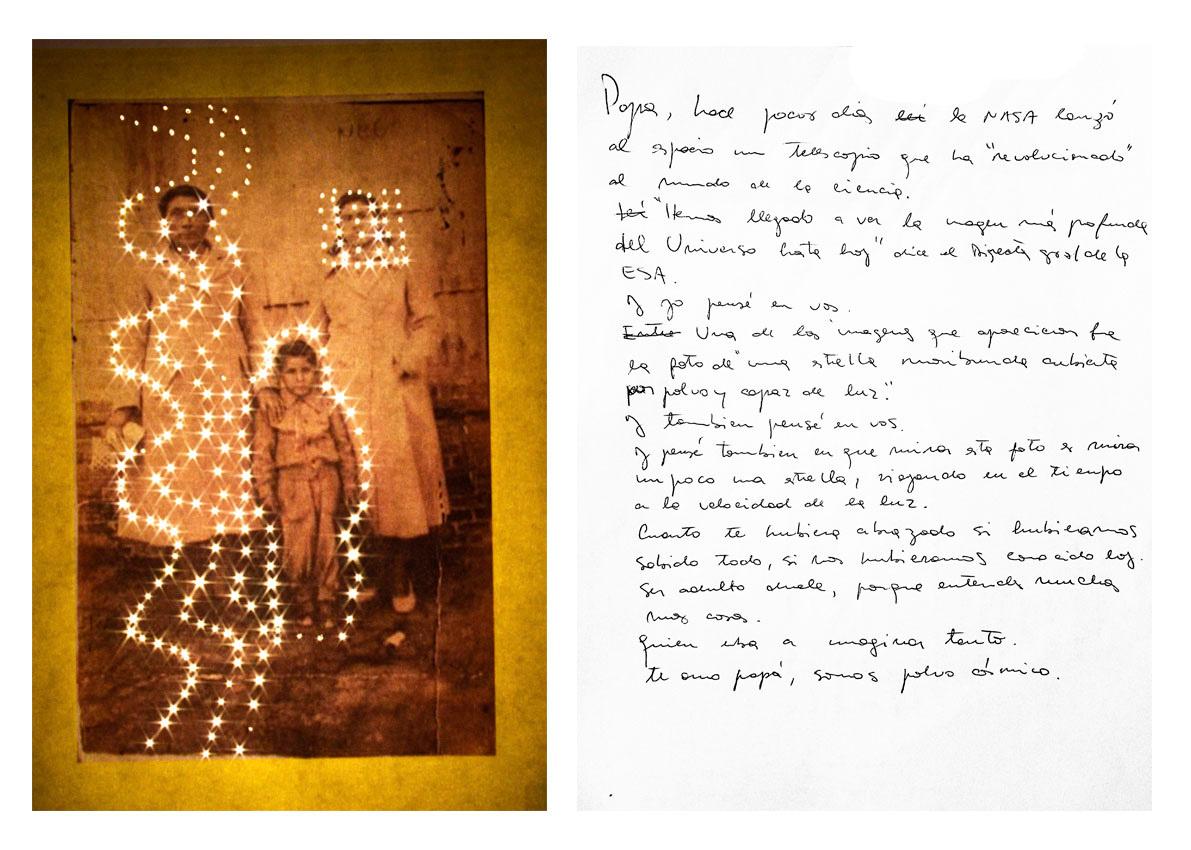 Papa, hace pocos días leí la NASA lanzó
al espacio un telescopio que ha "revolucionado"
al mundo de la ciencia.
leí "Hemos llegado a ver la imagen más profunda
del Universo hasta hoy" dice el gral de la
ESA.
Y yo pensé en vos.
Una de las imagenes que aparecieron fue
la foto de "una estrella moribunda cubierta
por polvo y capaz de luz."
Y tambien pensé en vos.
Y pensé tambien en que mirar esta foto es mirar
un poco una estrella, viajando en el tiempo
a la velocidad de la luz.
Cuanto te hubiera abrazado si hubieramos
sabido todo, si nos hubieramos conocido hoy.
Ser adulto duele, porque entendes muchas
mas cosas.
Quien iba a imaginar tanto.
te amo papá, somos polvo cósmico.